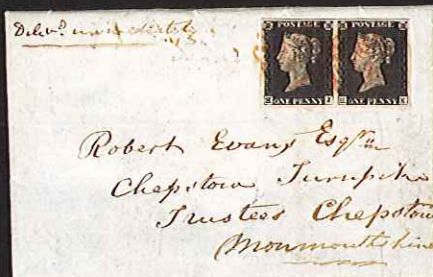 Delivd. immediately
POSTAGE POSTAGE
ONE PENNY ONE PENNY
Robert Evans Esqre
Chepstow Turnpike
Trustees Chepstow
Monmouthshire